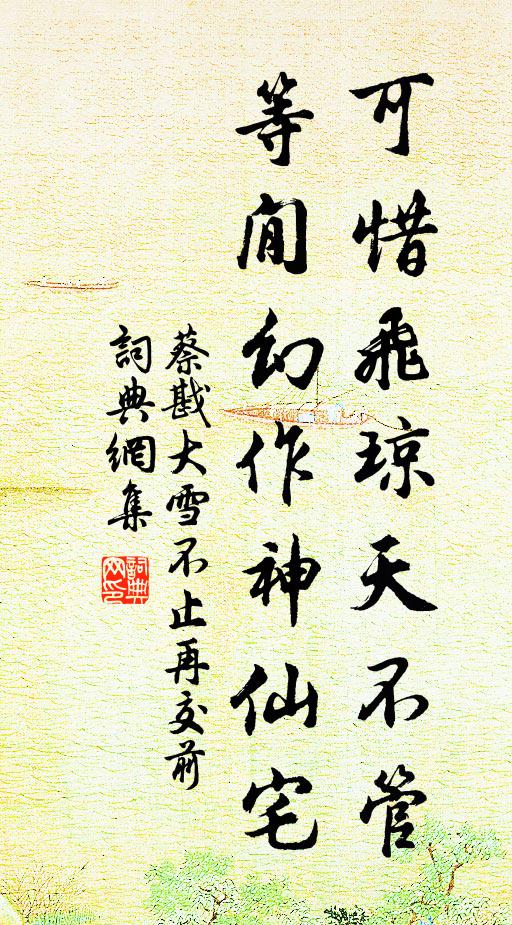 可惜飛琼天不管
等閒幻作神仙宅
蔡戡大雪不止再交前
詞典網集
詞典网印